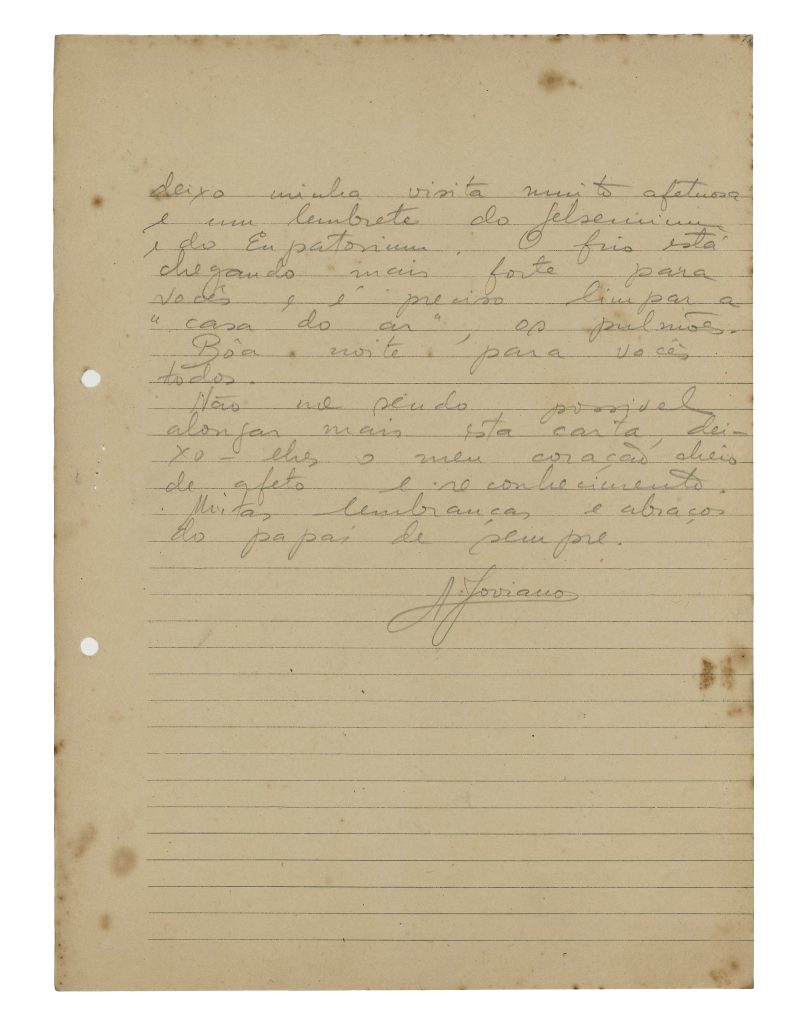 deixo minha visita muito afetuosa
e um lembrete do Gelsemium
e do Eupatorium. O frio está
chegando mais forte para
vocês e é preciso limpar a
"casa do ar", os pulmões.
Bôa noite para vocês
todos.
Não me sendo possivel
alongar mais esta carta, dei-
xo-lhes o meu coração cheio
de afeto e reconhecimento.
Muitas lembranças e abraços
do papai de sempre.
A. Joviano